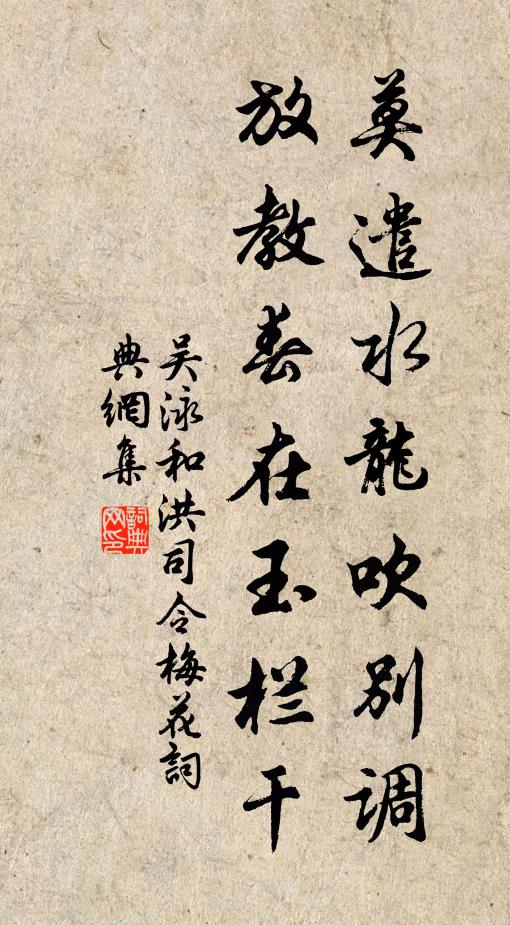 莫遣水龍吹别调
放教春在玉栏干
吴泳和洪司令梅花詞
典網集
詞典
网印